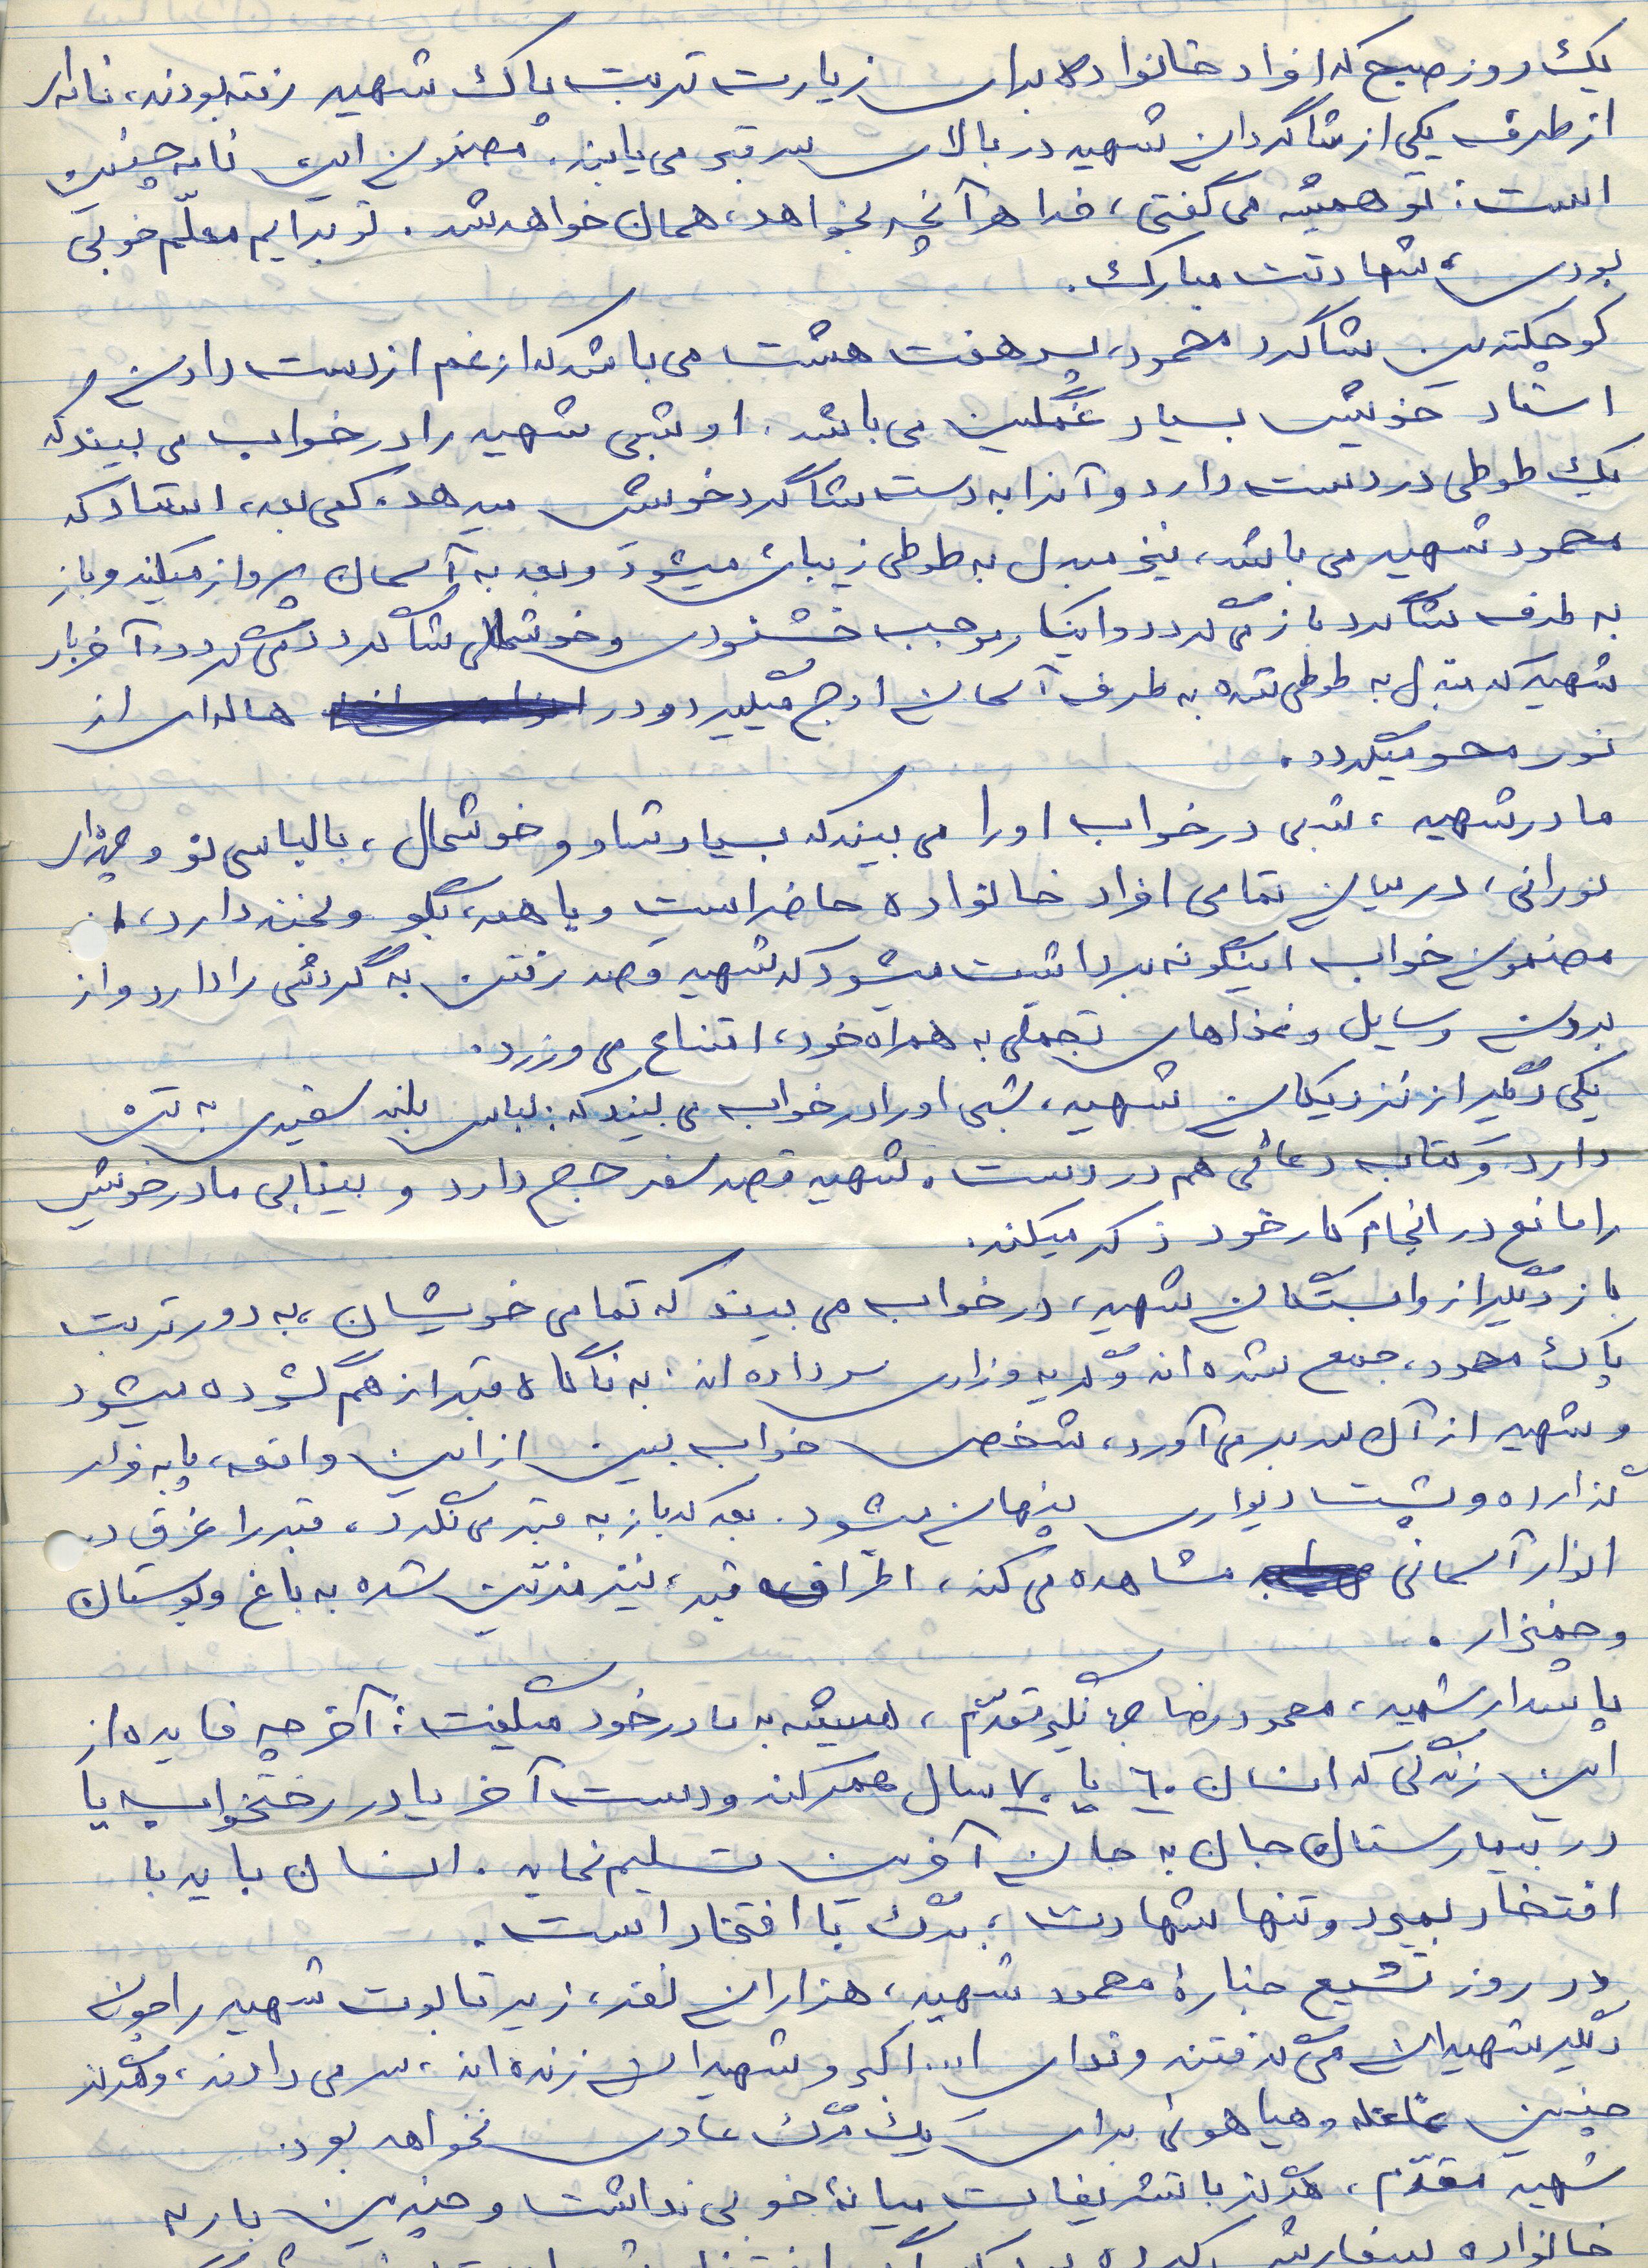 یک روز صبح که افراد خانواده برای زیارت تربت پاک شهید رفته بودند، نامه‌ای
از طرف یکی از شاگردان شهید در بالای سر قبر می یابند. مضمون این نامه چنین
است: تو همیشه می گفتی، خدا هر آنچه بخواهد، همان خواهد شد. تو برایم معلّم خوبی
بودی، شهادتت مبارک.
کوچکترین شاگرد محمود، پسر هفت هشت می باشد که از غم از دست دادن
استاد خویش بسیار غمگین می باشد. او شبی شهید را در خواب می بیند که
یک طوطی در دست دارد و آنرا به دست شاگرد خویش میدهد. کمی بعد، استاد که
محمود شهید می باشد، نیز مبدل به طوطی زیبائی میشود و بعد به آسمان پرواز میکند و باز
به طرف شاگرد باز می گردد و اینکار موجب خشنودی و خوشحالی شاگرد می گردد. آخر بار
شهید که مبدل به طوطی شده به طرف آسمان اوج میگیرد و در هاله‌ای از
نور محو میگردد.
مادر شهید، شبی در خواب او را می بیند که بسیار شاد و خوشحال، با لباسی نو و چهره‌ای
نورانی، در میان تمامی افراد خانواده حاضر است و با همه، بگو و بخند دارد، از
مضمون خواب اینگونه برداشت میشود که شهید قصد رفتن به گردشی را دارد و از
بردن وسایل و غذاهای تجملی به همراه خود، امتناع می ورزد.
یکی دیگر از نزدیکان شهید، شبی او را در خواب می بیند که: لباس بلند سفیدی به تن
دارد و کتاب دعائی هم در دست. شهید قصد سفر حج دارد و بیتابی مادر خویش
را مانع در انجام کار خود ذکر میکند.
باز دیگر از وابستگان شهید، در خواب می بیند که تمامی خویشان، به دور تربت
پاک محمود، جمع شده اند و گریه و زاری سر داده اند. به ناگاه قبر از هم گشوده میشود
و شهید از آن سر بر می آورد، شخص خواب بین از این واقعه، پا به فرار
گذارده و پشت دیواری پنهان میشود. بعد که باز به قبر می نگرد، قبر را غرق در
انوار آسمانی مشاهده می کند، اطراف قبر، نیز مزیّن شده به باغ و بوستان
و چمنزار.
پاسدار شهید، محمود رضا مقدّم، همیشه به مادر خود میگفت: آخر چه فایده از
این زندگی که انسان ۶۰ یا ۷۰ سال عمر کند و دست آخر یا در رختخواب یا
در بیمارستان جان به جان آفرین تسلیم نماید. انسان باید با
افتخار بمیرد و تنها شهادت، مرگ با افتخار است.
در روز تشیع جنازهٔ محمود شهید، هزاران نفر، زیر تابوت شهید را چون
دیگر شهیدان می گرفتند و ندای ا... اکبر و شهیدان زنده اند، سر می دادند، و هرگز
چنین و هیاهوئی برای یک مرگ عادی نخواهد بود.
شهید مقدّم، هرگز با تشریفات میانهٔ خوبی نداشت و چندین بار به
خانواده سفارش کرده بود که